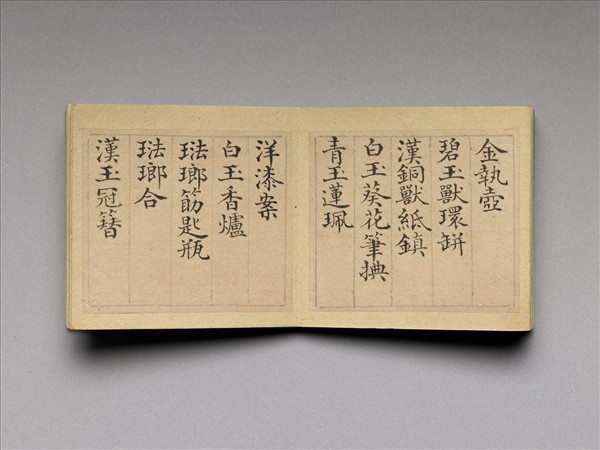 金執壺
碧玉獸環缾
漢銅獸紙鎮
白玉葵花筆捵
青玉蓮珮
洋漆案
白玉香爐
琺瑯筯匙瓶
琺瑯合
漢玉冠簪